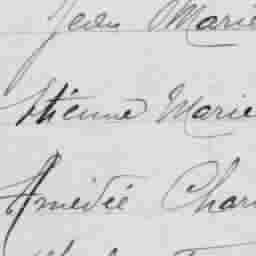 Jean Marie
Etienne Marie
Amédée Char